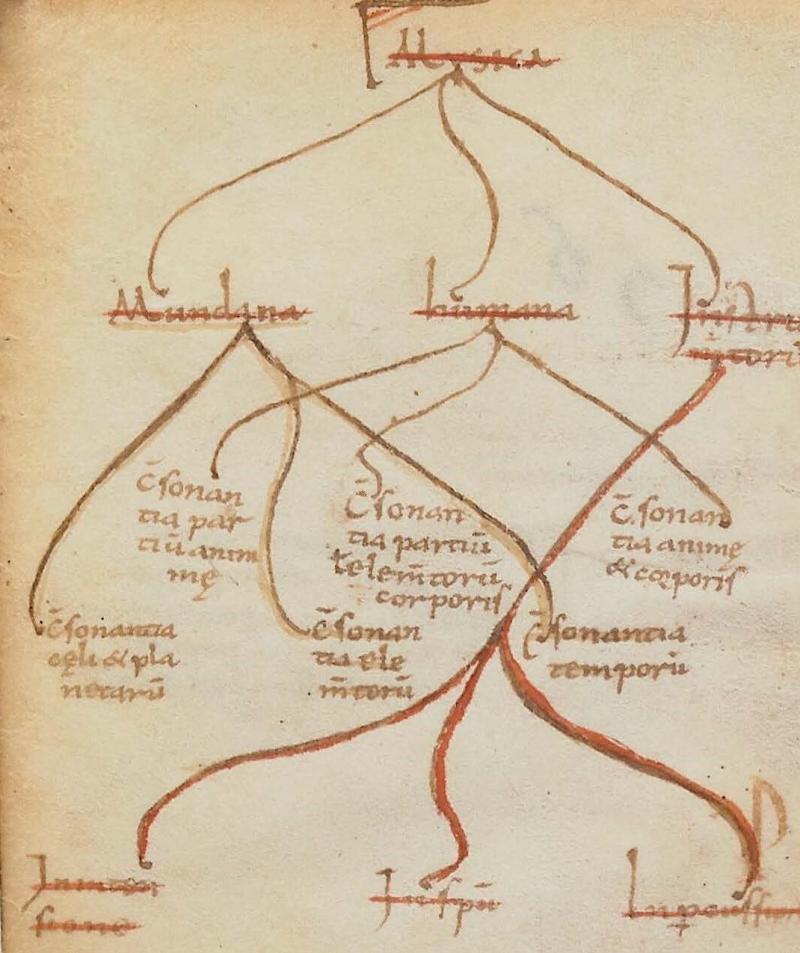 Musica
Mundana
humana
Instru
mtorū
c̄sonan
tia par
tiū anim
mę
c̄sonan
tia partiū
ł elem̄torū
corporis
c̄sonan
tia animę
& corporis
c̄sonantia
cęli & pla
netarū
c̄sonan
tia ele
m̄torū
c̄sonantia
temporū
In inten
sione
In spū
In ꝑcussion